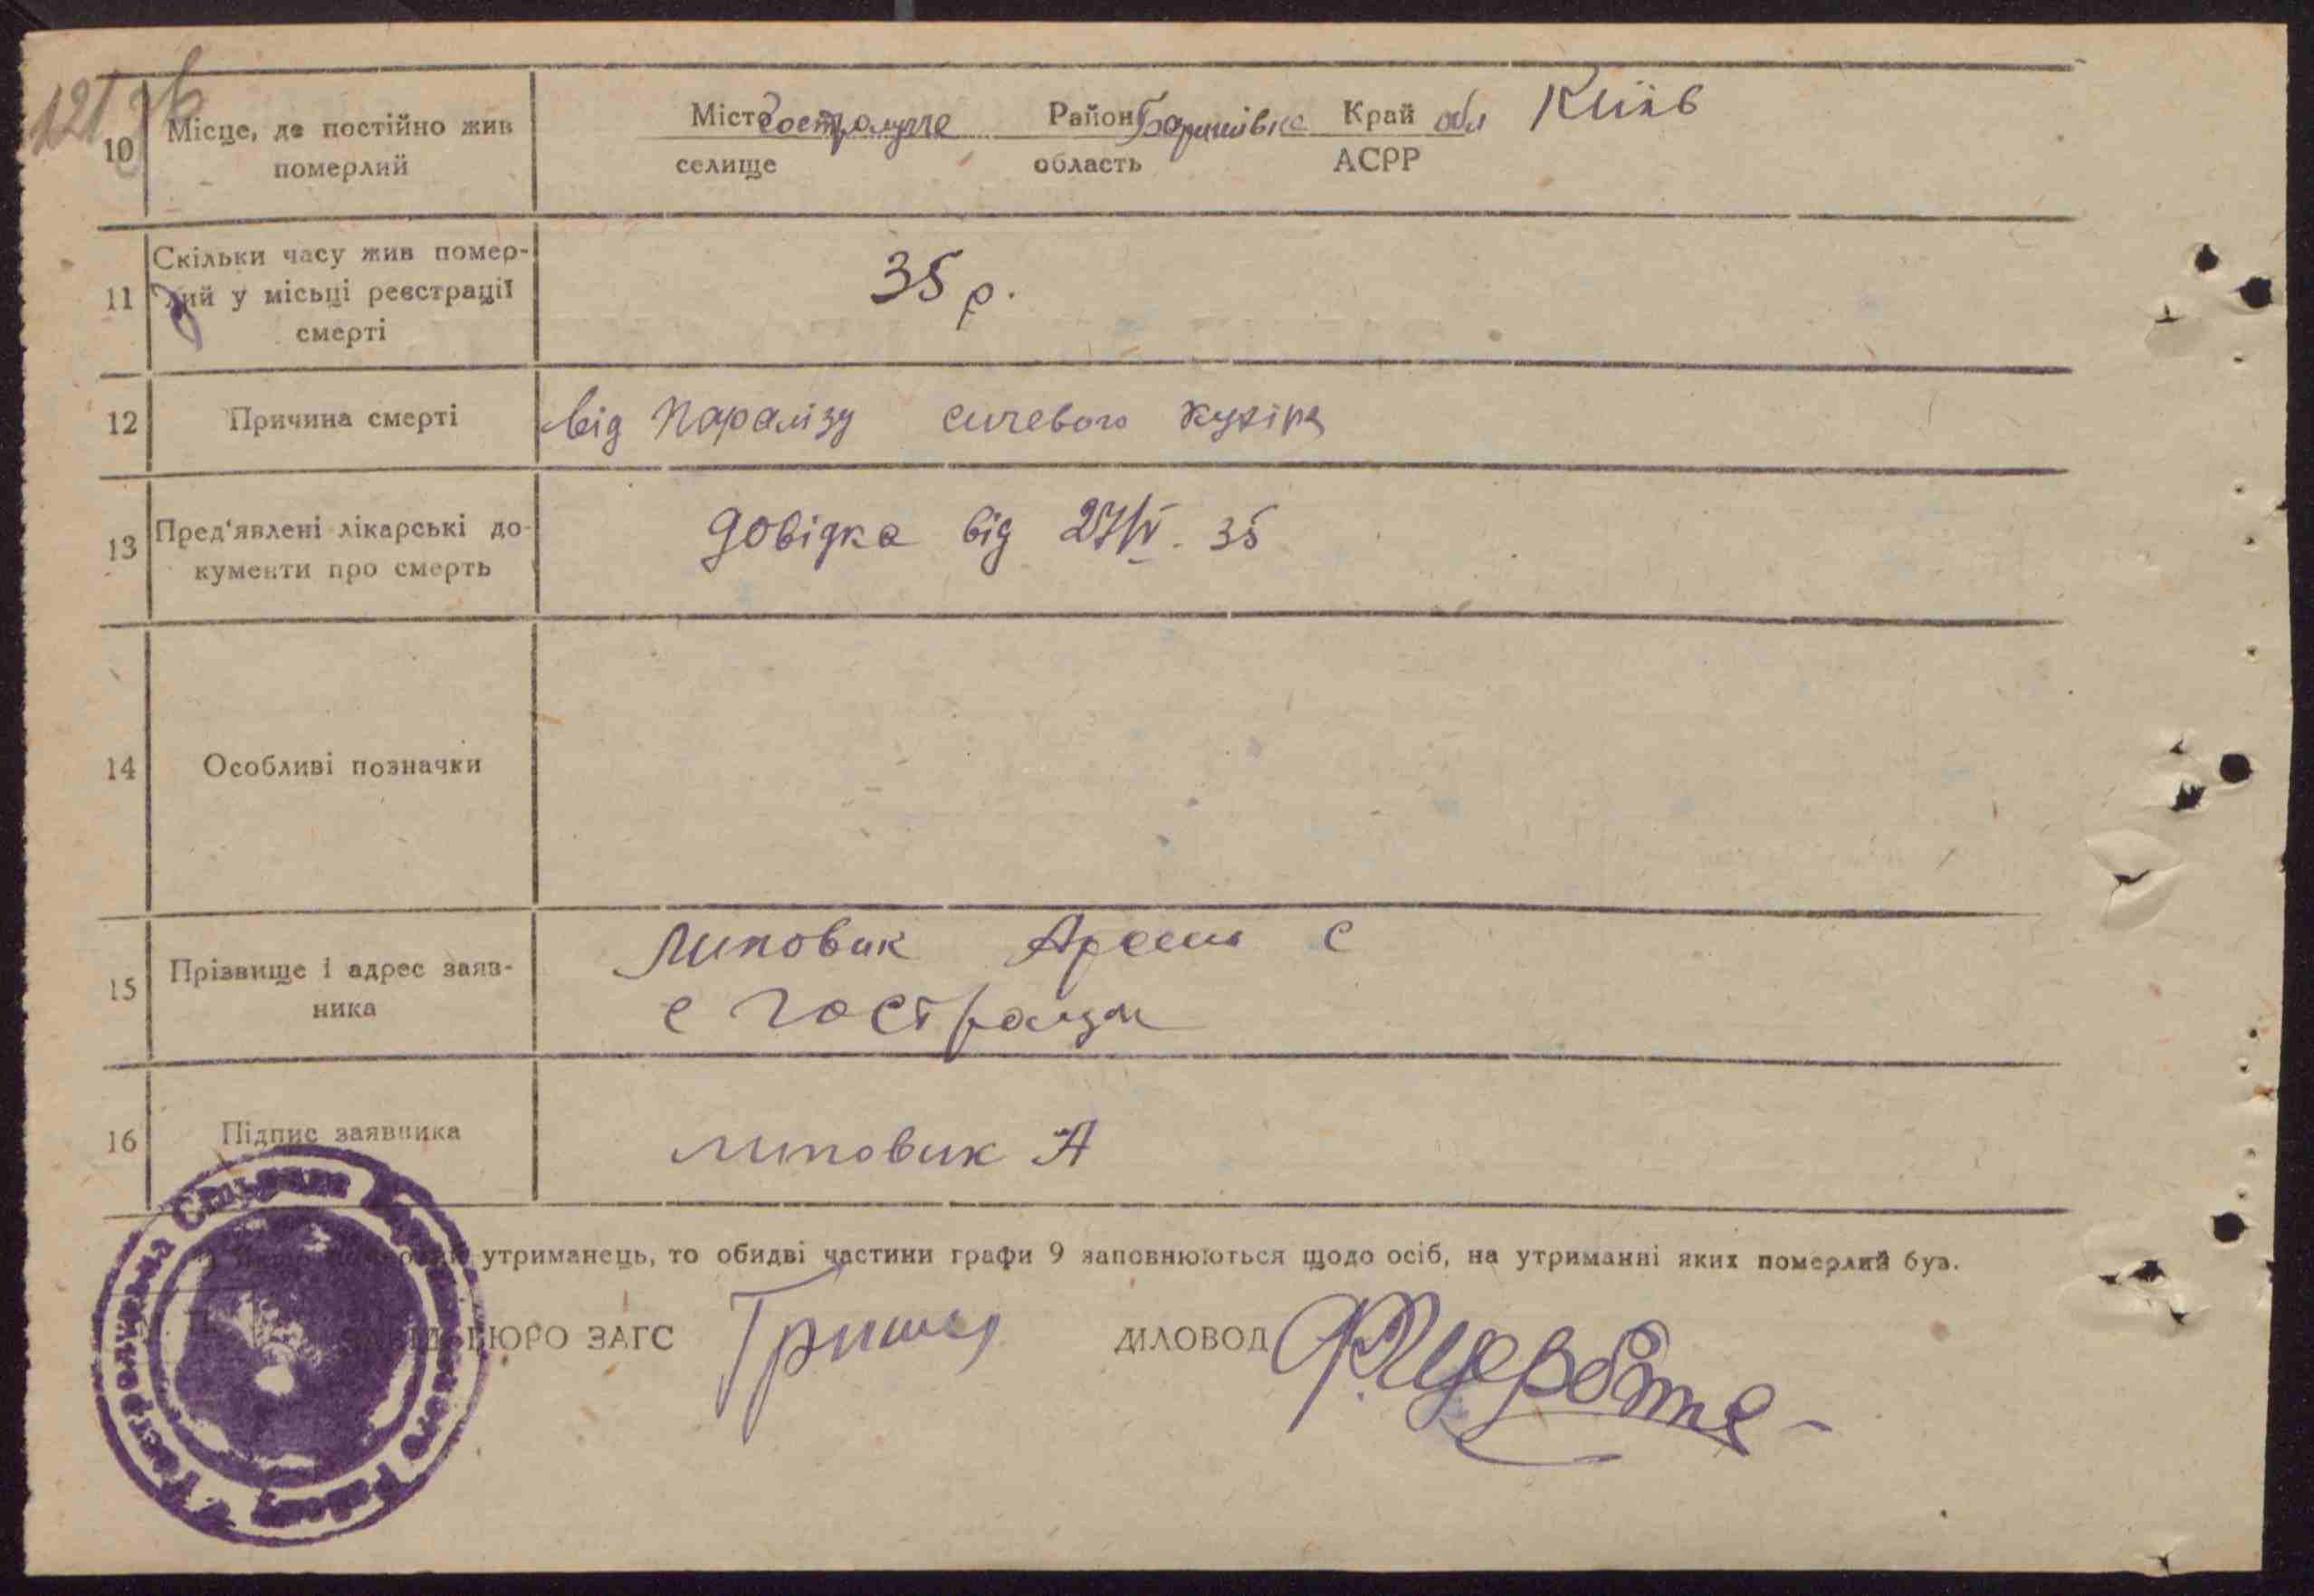 121 зв
10 Місце, де постійно жив померлий
Місто Гостролуччя Район Баришівка Край обл Київ
селище область АСРР
11 Скільки часу жив помер-
лий у місьці реєстрації
смерті
35 р.
12 Причина смерті
від паралізу сичевого
13 Пред'явлені лікарські до-
кументи про смерть
довідка від 27/IV. 35
14 Особливі позначки
15 Прізвище і адрес заяв-
ника
Липовик Арсень С
с Гостролуч
16 Підпис заявника
Липовик А
утриманець, то обидві частини графи 9 заповнюються щодо осіб, на утриманні яких померлий був.
БЮРО ЗАГС
ДІЛОВОД
Гостролуцька Сільська Рада Району